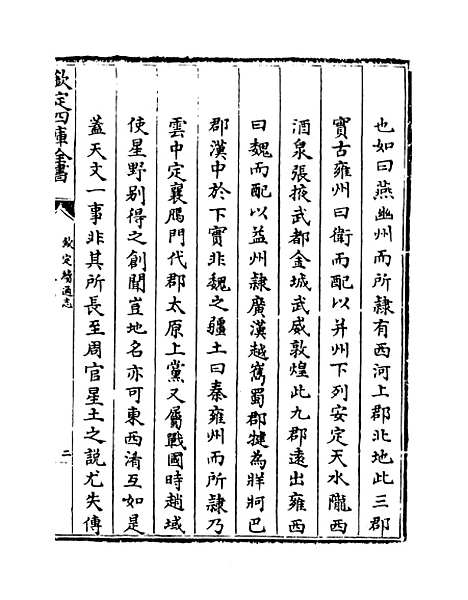 也如曰燕幽州而所隸有西河上郡北地此三郡
實古雍州曰衛而配以并州下列安定天水隴西
酒泉張掖武都金城武威敦煌此九郡遠出雍西
曰魏而配以益州隸廣漢越嶲蜀郡犍為牂牁巴
郡漢中於下實非魏之疆土曰秦雍州而所隸乃
雲中定襄鴈門代郡太原上黨又屬戰國時趙域
使星野别得之創聞豈地名亦可東西淆互如是
蓋天文一事非其所長至周官星土之說尤失傳
欽定四庫全書
欽定續通志
二